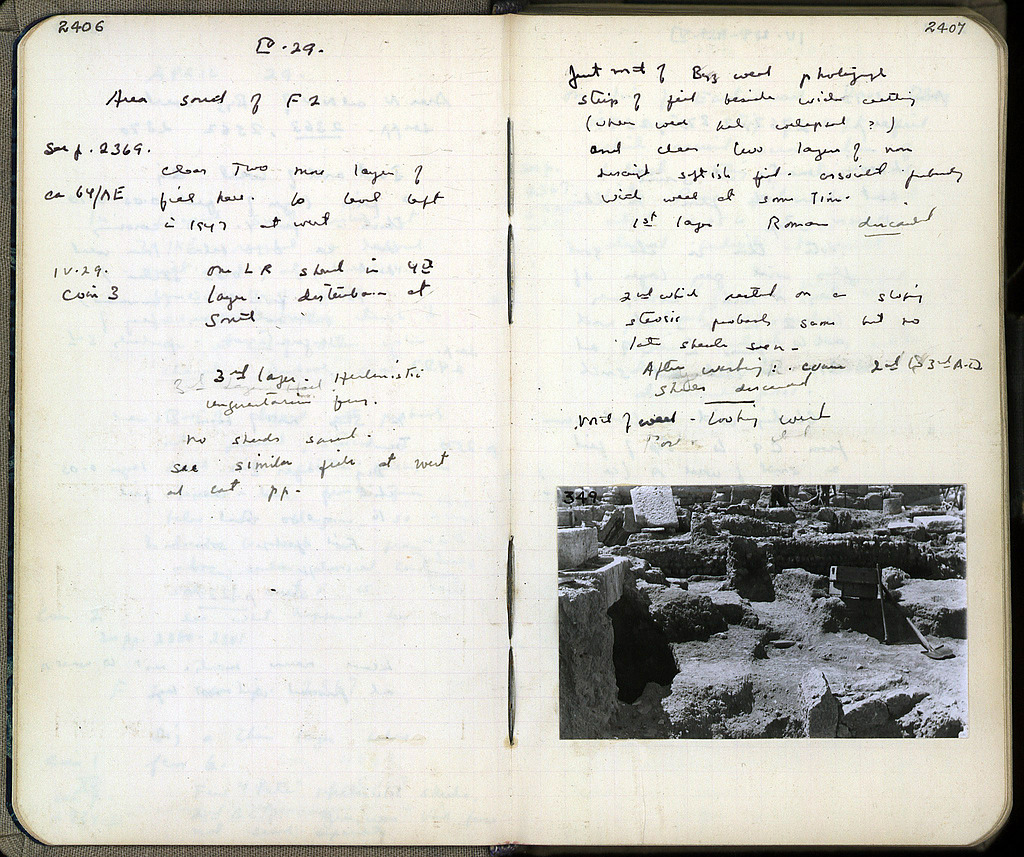 2406
IV.29.
Area south of F2
See p. 2369.
Clear two more layers of
ca 64/ΛE
field here. to level left
in 1947 at west
IV.29.
Coin 3
one LR sherd in 4th
layer. disturbance at
South
3rd layer. Hellenistic
unguentarium frag.
no sherds saved.
see similar fill at west
at east pp.
2407
Just north of Byz wall photograph
strip of fill beside wider
(where wall had collapsed?)
and clear two layers of non
descript softish fill. associated probably
with wall at some time.
1st layer Roman discard
2nd which rested on a
probably same but no
late sherds seen.
After washing: 2nd 3rd A.D.
sherds discard
North of wall - Looking west
349